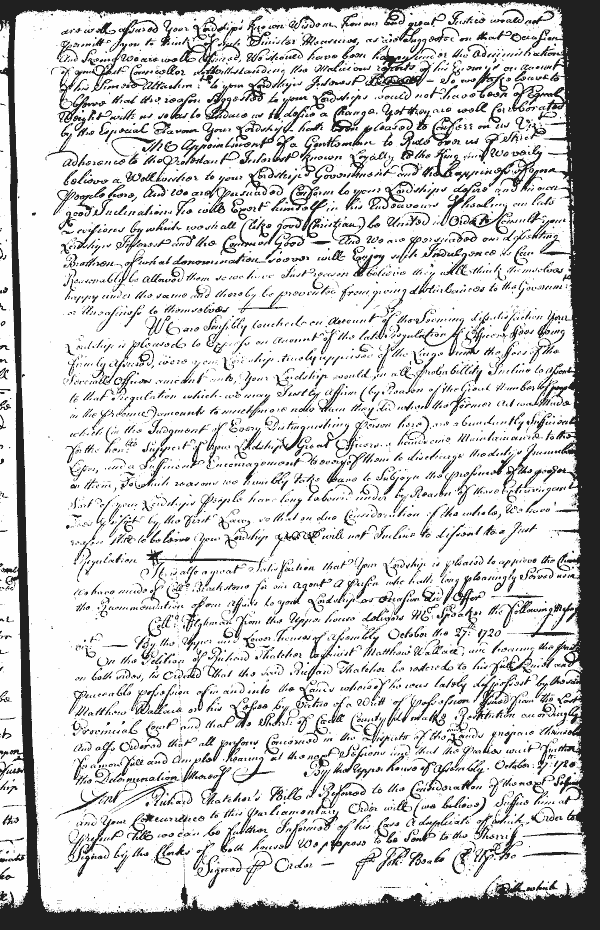 are well assured Your Lordships known Wisdom, honour and great Justice would not
permitt you to think of such Sinister Measures, as are suggested on that Occasion
And Seeing We are well assured We should have been happy under the Administration
of your last Councellor notwithstanding the Malicious of his Enemys on Account
of his Sincere Attachment to your Lordships Interest So we take leave to
Observe that the reasons suggested to your Lordships would not have been of Equal
Weight with us so as to Induce us to desire a change. Yet they are well corroborated
by the Especial favour Your Lordship hath been pleased to conferr on us Vizt
The Appointment of a Gentleman to Rule over us of Strict
Adherence to the Protestant Interest known Loyalty to the King and We verily
believe a Well wisher to your Lordships Government and the happiness of your
People here, And We are perswaded Conform to your Lordships desire and his own
good Inclinations he will Exert himself in his Endeavours of healing our late
Divisions by which we shall (like good Christians) be United in Order to Consult your
Lordships Interest and the Common Good — And We are perswaded our dissenting
Brethren of what denomination soever will Enjoy such Indulgence as can
Reasonably be Allowed them so we have Just reason to believe they will think themselves
happy under the same and thereby be prevented from giving disturbances to the Governmt
or Uneasiness to themselves
We are Sensibly touched on Account of the Seeming dissatisfaction Your
Lordship is pleased to Express on Account of the late Regulation of Officers Fees being
firmly Assured, were your Lordship truly apprised of the Large Sums the fees of the
Several Officers amount unto, Your Lordship would in all probability Incline to Assent
to that Regulation which we may Justly Affirm (by Reason of the Great Number of people
in the Province) amounts to much more now than they did when the former Act was Made
which (in the Judgment of Every Distinguishing Person here) are abundantly Sufficient
for the honble Support of your Lordships Great Officers a handsome Maintainance to the
Lesser, and a Sufficient Encouragement to every of them to discharge the dutys Incumbent
on them, To which reasons we humbly take leave to Subjoyn the pressures the poorer
Sort of your Lordships People have long laboured under by Reason of these Extravagant
Fees Exist by the first Law, so that on due Consideration of the whole, We have
reason still to believe Your Lordship will not Incline to dissent to a Just
Regulation
It is also a great Satisfaction that Your Lordship is pleased to approve the Choice
we have made of Collo Blackstone for our Agent A Person who hath long pleasingly Served us in
the Recommendation of our Affairs to your Lordship as Occasion did Offer
Collo Tilghman from the Upper house delivers Mr Speaker the following Message
vizt — By the Upper and Lower houses of Assembly October the 27: 1720
On the Petition of Richard Thatcher against Matthew Wallace, on hearing the
on both sides, its Ordered That the said Richard Thatcher be restored to his full Quiet and
peaceable possession of in and into the Lands whereof he was lately dispossest by the said
Matthew Wallace or his Lessee by Virtue of a Writ of Possession Issued from the Land
Provincial Court and that the Sherriff of Cecill County do make Restitution accordingly
And also Ordered that all persons Concerned in the Dispute of the Lands prepare themselves
for a more full and Ample hearing at the next Sessions and that the Parties wait further
the Determination thereof By the Upper house of Assembly October 27th 1720
Gent
Richard Thatcher's Bill is Referred to the Consideration of the next Sessions
and Your Concurrence to this Parliamentary Order will (we believe) Suffice him at
Present till we can be further Informed of his Case A duplicate of which Order to
Signed by the Clerks of both houses We propose to be Sent to the Sherriff
Signed Ꝑ Order — Ꝑ Joh: Beale Cl Up ho